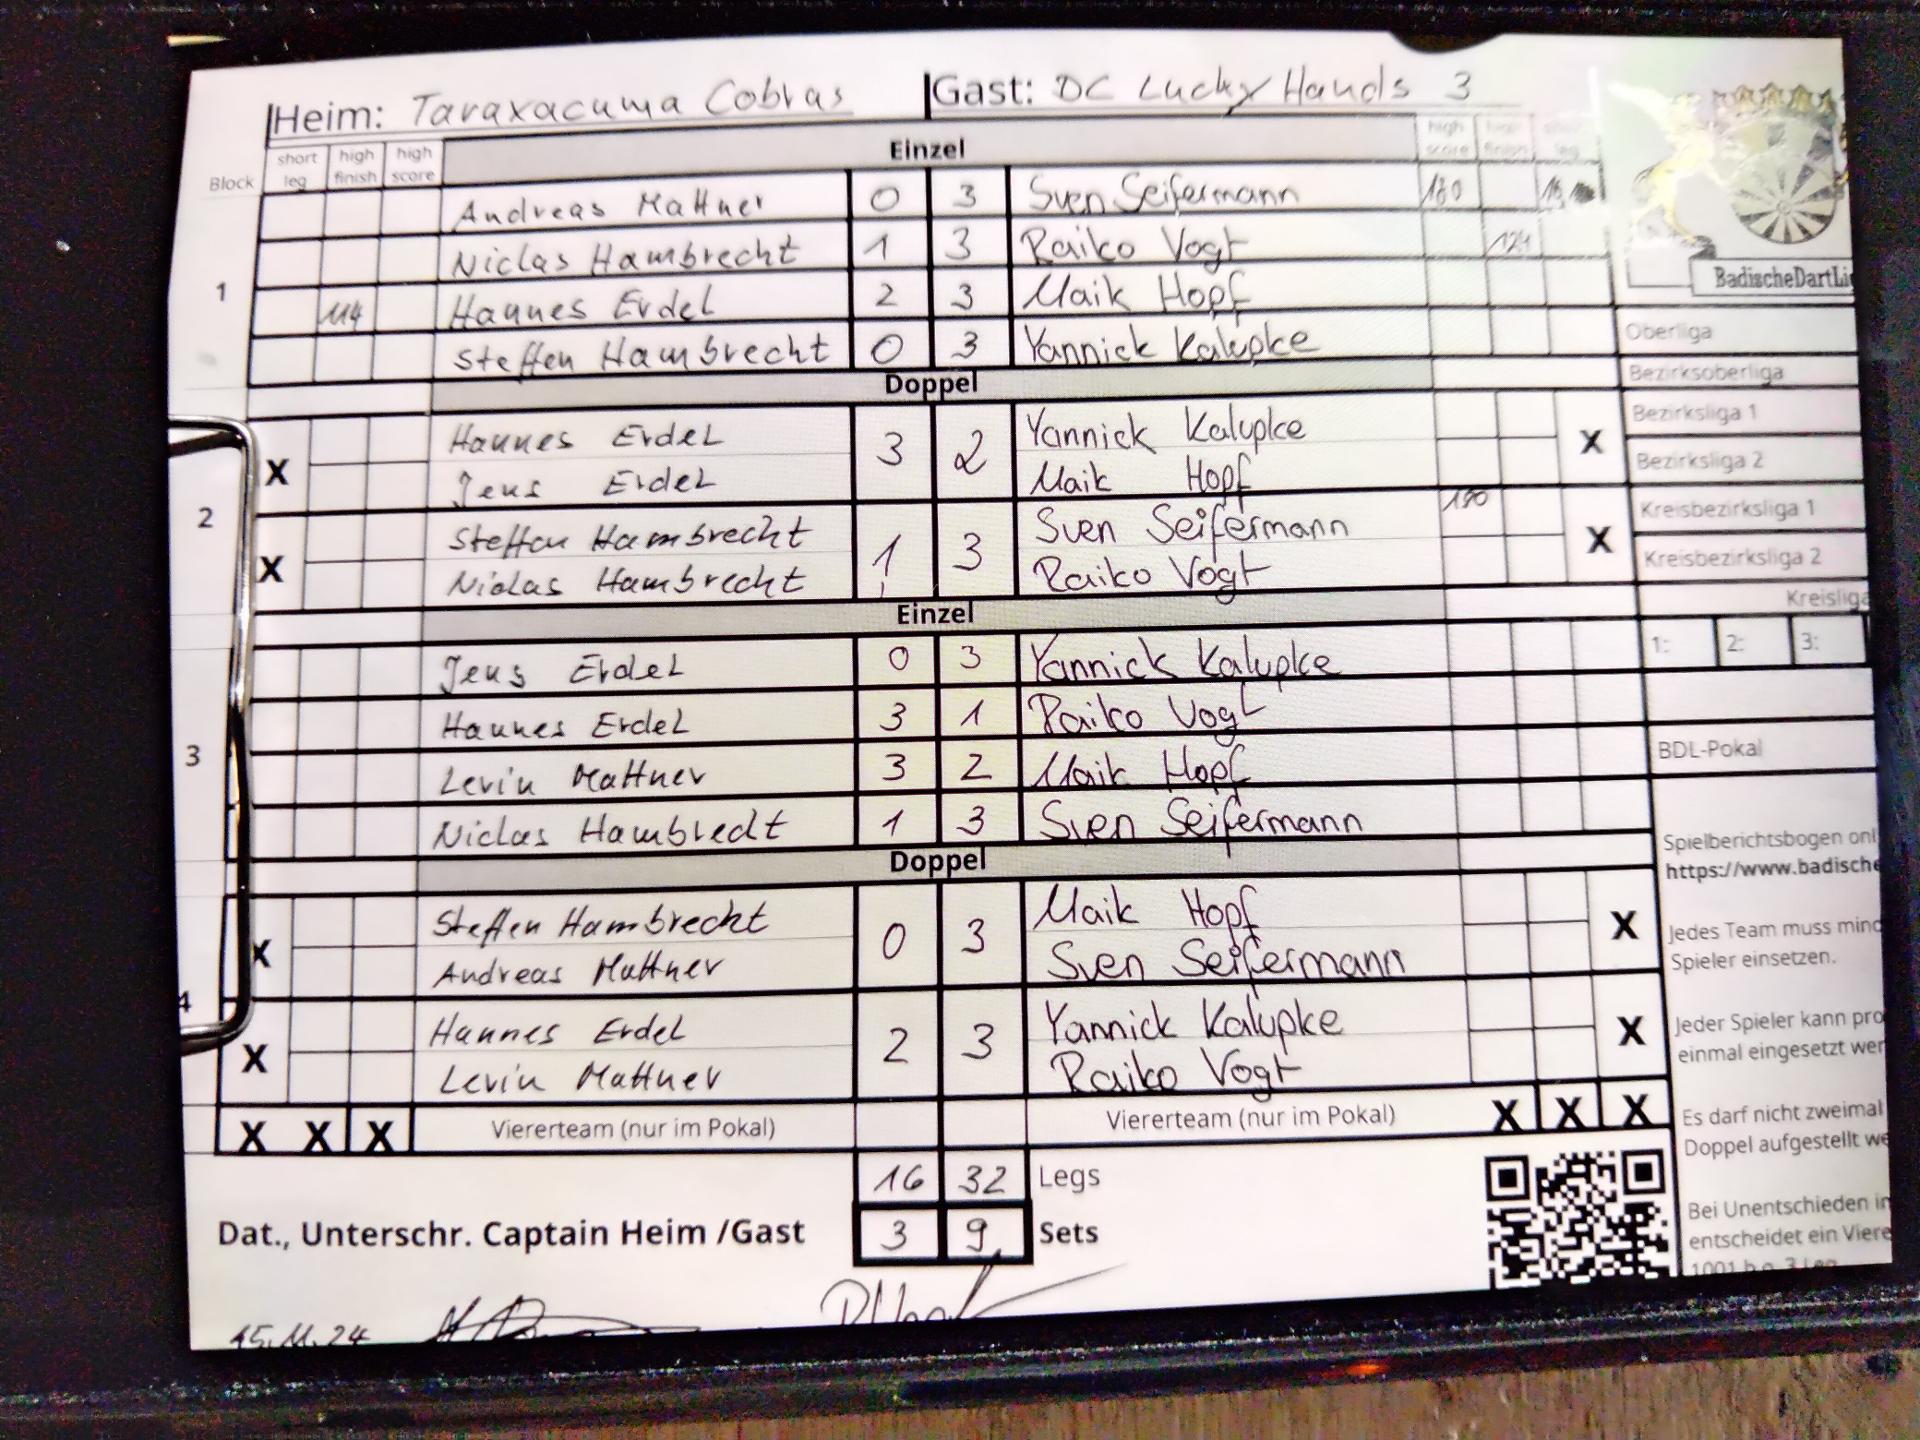 Heim: Taraxacuma Cobras Gast: DC Lucky Hands 3
Block short leg high finish high score Einzel high score high finish short leg
1
Andreas Mattner 0 3 Sven Seifermann 180
Niclas Hambrecht 1 3 Raiko Vogt 124
114 Hannes Erdel 2 3 Maik Hopf
Steffen Hambrecht 0 3 Yannick Kalupke
Doppel
2
X Hannes Erdel 3 2 Yannick Kalupke X
Jens Erdel Maik Hopf
X Steffen Hambrecht 1 3 Sven Seifermann 180 X
Niclas Hambrecht Raiko Vogt
Einzel
3
Jens Erdel 0 3 Yannick Kalupke
Hannes Erdel 3 1 Raiko Vogt
Levin Mattner 3 2 Maik Hopf
Niclas Hambrecht 1 3 Sven Seifermann
Doppel
4
X Steffen Hambrecht 0 3 Maik Hopf X
Andreas Mattner Sven Seifermann
X Hannes Erdel 2 3 Yannick Kalupke X
Levin Mattner Raiko Vogt
X X X Viererteam (nur im Pokal) Viererteam (nur im Pokal) X X X
16 32 Legs
Dat., Unterschr. Captain Heim /Gast 3 9 Sets
15.11.24
BadischeDartLi
Oberliga
Bezirksoberliga
Bezirksliga 1
Bezirksliga 2
Kreisbezirksliga 1
Kreisbezirksliga 2
Kreisliga
1: 2: 3:
BDL-Pokal
Spielberichtsbogen onl
https://www.badische
Jedes Team muss mind
Spieler einsetzen.
Jeder Spieler kann pro
einmal eingesetzt wer
Es darf nicht zweimal
Doppel aufgestellt we
Bei Unentschieden in
entscheidet ein Viere
1001 b.o. 3 Leg